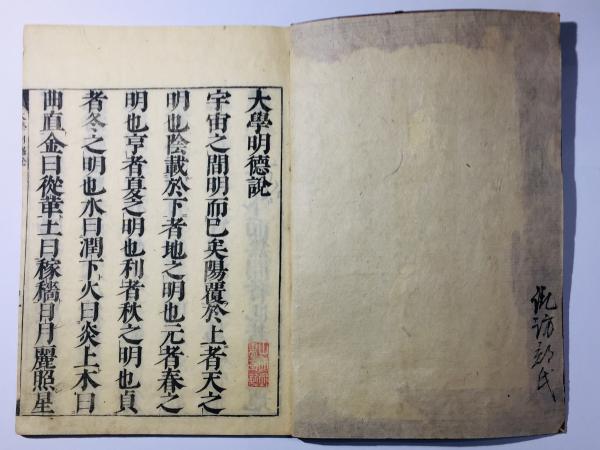 大學明德說
宇宙之間明而已矣陽覆於上者天之
明也陰載於下者地之明也元者春之
明也亨者夏之明也利者秋之明也貞
者冬之明也水曰潤下火曰炎上木曰
曲直金曰從革土曰稼穡日月麗照星
氏